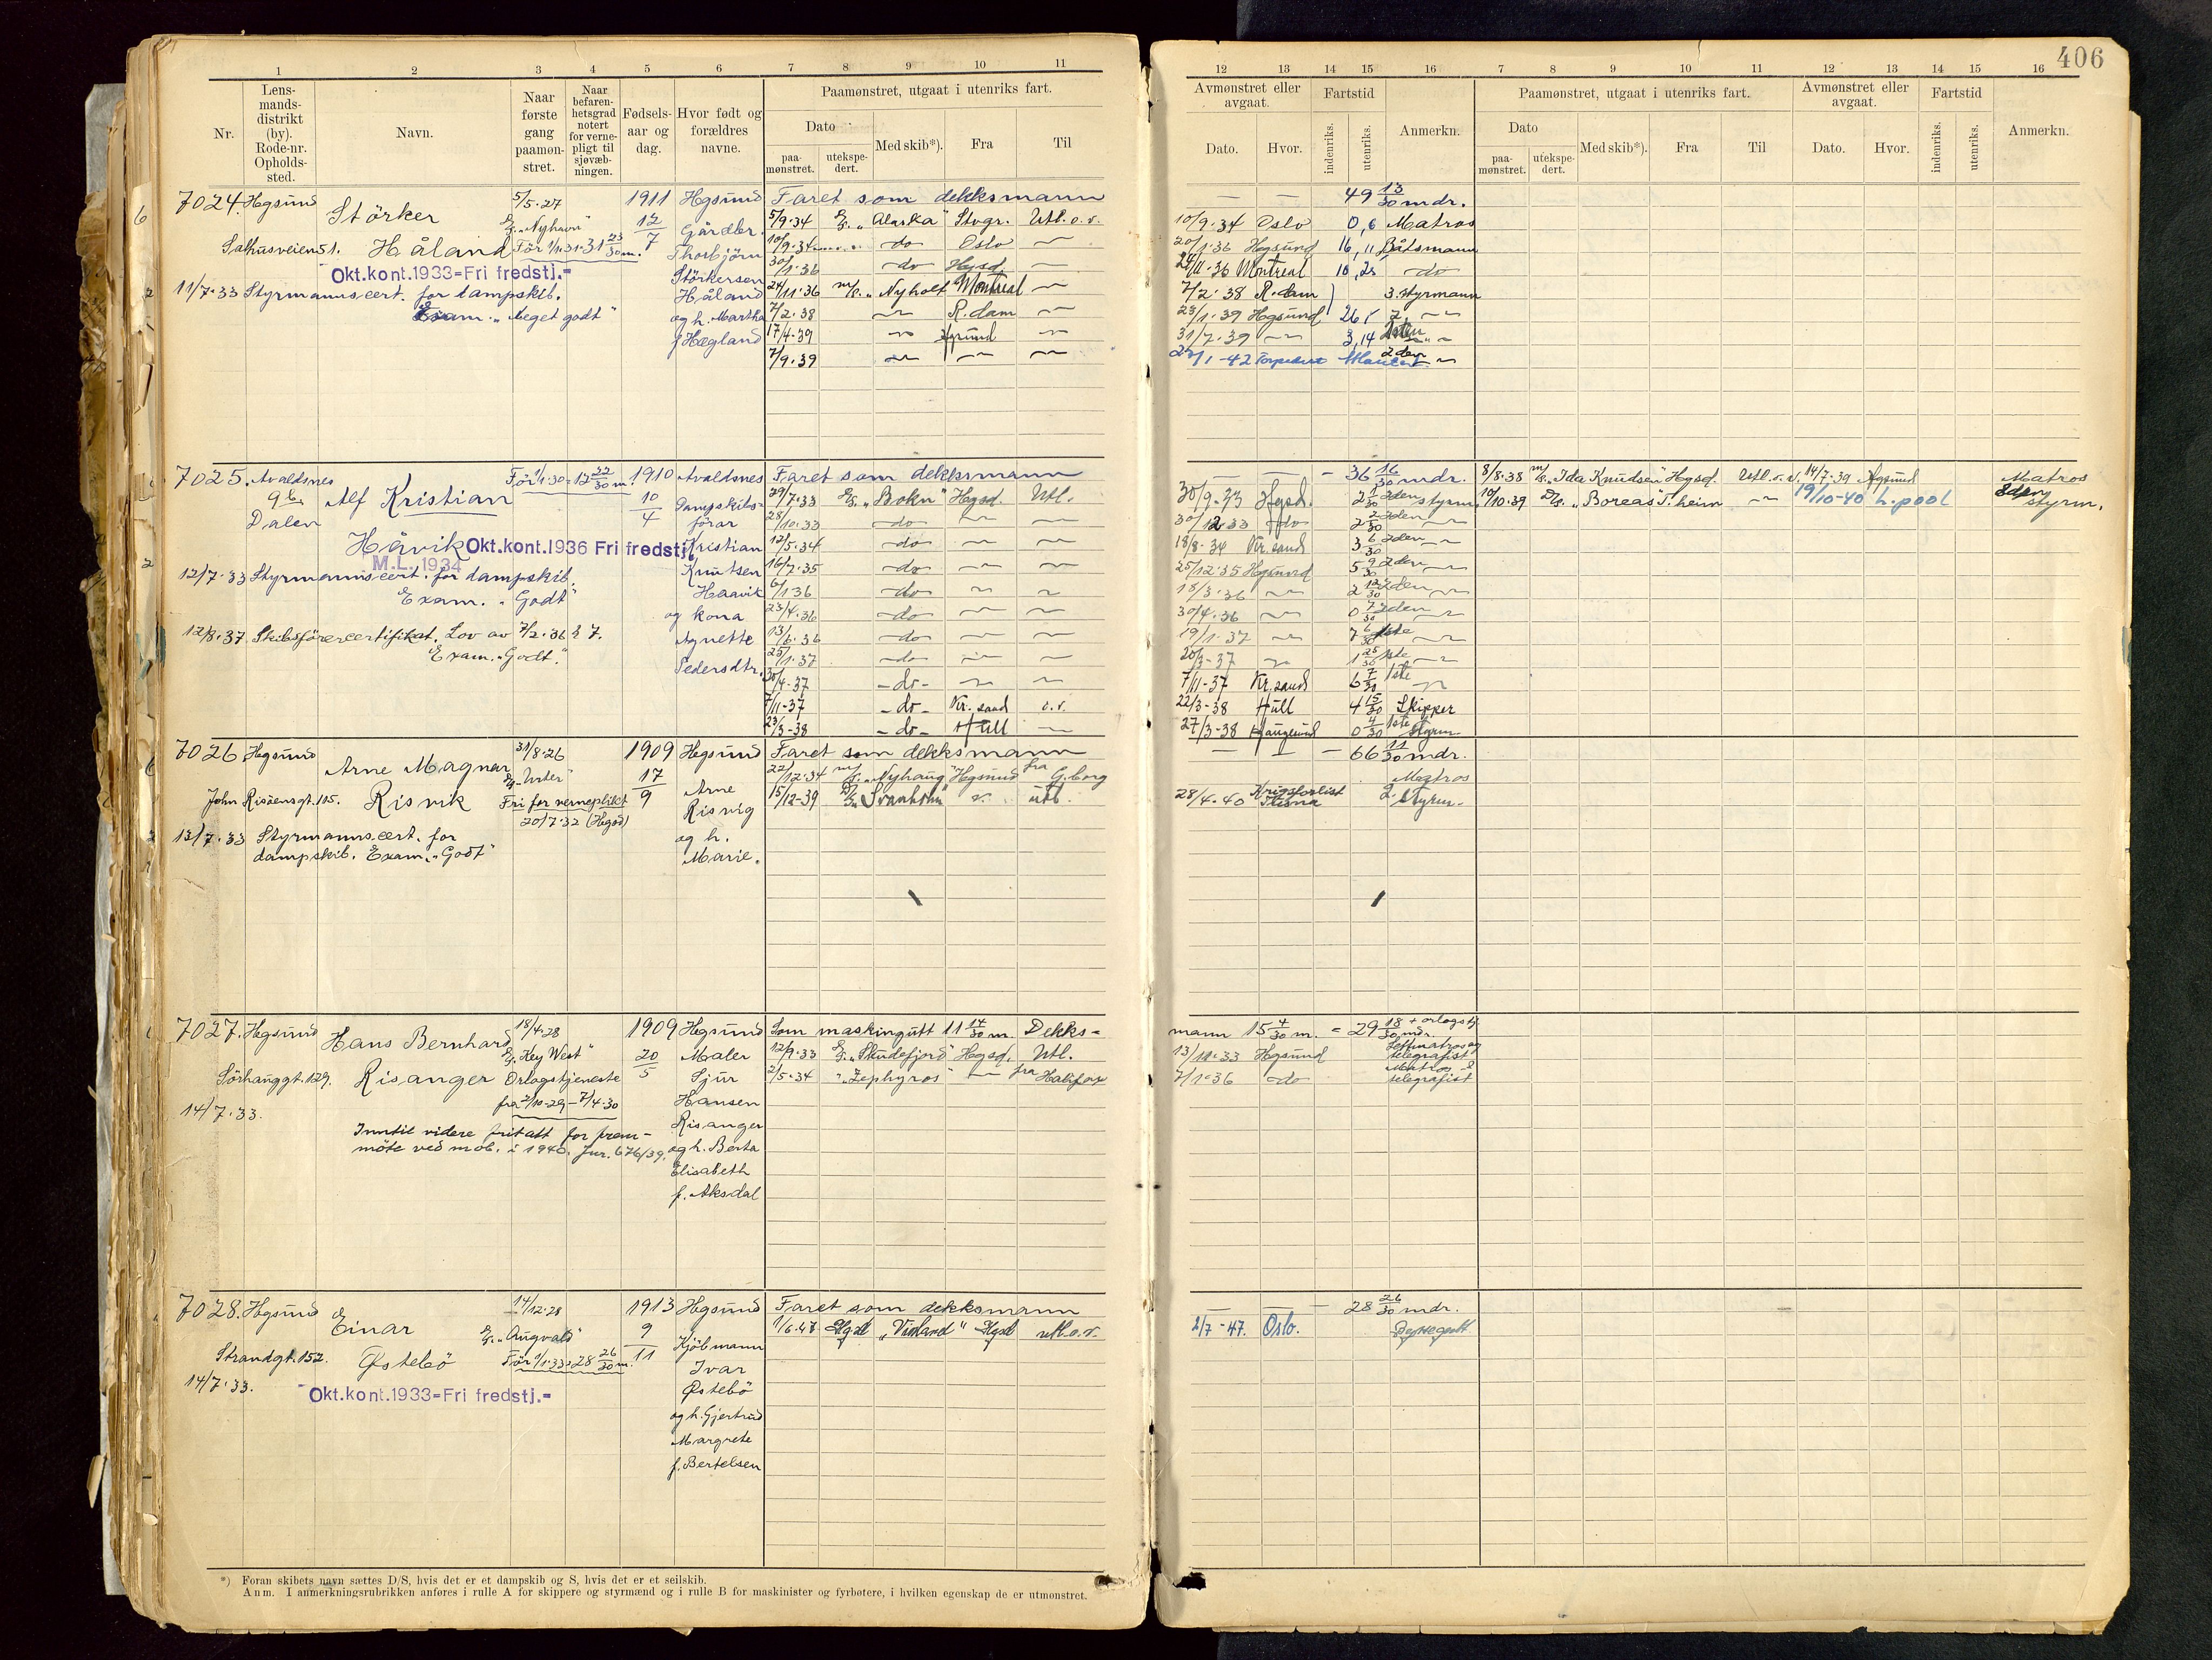 406
1 2 3 4 5 6 7 8 9 10 11
Nr.
Lens-
mands-
distrikt
(by).
Rode-nr.
Opholds-
sted.
Navn.
Naar
første
gang
paamøn-
stret.
Naar
befaren-
hetsgrad
notert
for verne-
pligt til
sjøvæb-
ningen.
Fødsels-
aar og
dag.
Hvor født og
forældres
navne.
Paamønstret, utgaat i utenriks fart.
Dato
paa-
mønstret.
utekspe-
dert.
Med skib*).
Fra
Til
12 13 14 15 16 7 8 9 10 11 12 13 14 15 16
Avmønstret eller
avgaat.
Dato. Hvor.
Fartstid
indenriks. utenriks.
Anmerkn.
Paamønstret, utgaat i utenriks fart.
Dato
paa-
mønstret.
utekspe-
dert.
Med skib*). Fra Til
Avmønstret eller
avgaat.
Dato. Hvor.
Fartstid
indenriks. utenriks.
Anmerkn.
7024. Hgsund
Störker
Håland
Salhusveien 51.
5/5.27
D/S. „Nyhavn"
Før 1/1 31. 31 23/30 m.
Okt.kont.1933=Fri fredstj.=
11/7.33 Styrmannscert. for dampskib.
Exam. „Meget godt"
1911
12/7
Hgsund
Gårdbr.
Thorbjörn
Störkersen
Håland
og h. Martha
f. Hægland
Faret som dekksmann
— — 49 13/30 mdr.
5/9.34 D/S. „Alaska" Stvgr. Utl. o.v.
10/9.34 Oslo 0,6 Matros
10/9.34 do Oslo —
20/1.36 Hgsund 16,11 Båtsmann
30/1.36 do Hgsd. —
24/11.36 Montreal 10,25 do
24/11.36 m/S. „Nyholt" Montreal —
7/2.38 R.dam 3. styrmann
7/2.38 — R.dam —
23/1.39 Hgsund 26,1 2. —
17/4.39 — Hgsund —
31/7.39 — 3,14 2den —
7/9.39 — — —
22/1-42 Torpedert Atlanteren 2den —
7025. Avaldsnes
9b.
Dalen
Alf Kristian
Håvik
Før 1/1.30=12 22/30 m.
Okt.kont.1936 Fri fredstj.
M.L. 1934
12/7.33 Styrmannscert. for dampskib.
Exam. „Godt"
12/8.37 Skibsförercertifikat. Lov av 7/2.36 § 7.
Exam. „Godt".
1910
10/4
Avaldsnes
Dampskibs-
förar
Kristian
Knutsen
Haavik
og kona
Agnette
Pedersdtr.
Faret som dekksmann
— — 36 16/30 mdr.
29/7.33 D/S. „Bokn" Hgsd. Utl.
30/9.33 Hgsd. 2 2/30 2den styrm.
28/10.33 do — —
30/12.33 do 2 2/30 2den —
12/5.34 do — —
18/8.34 Kr.sand 3 6/30 2den —
16/7.35 do — —
25/12.35 Hgsund 5 9/30 2den —
6/1.36 do — —
18/3.36 — 2 12/30 2den —
23/4.36 do — —
30/4.36 — 0 7/30 2den —
13/6.36 do — —
19/1.37 — 7 6/30 1ste —
25/1.37 do — —
20/3-37 — 1 25/30 1ste —
30/4-37 do — —
7/11-37 Kr.sand 6 7/30 1ste —
7/11-37 do Kr.sand o.v.
22/3-38 Hull 4 15/30 Skipper
23/3-38 do Hull —
27/3-38 Haugesund 0 4/30 1ste Styrm
8/8.38 m/S. „Ida Knudsen" Hgsd. Utl. o.v. 14/7.39 Hgsund Matros
10/10.39 D/S. „Boreas" T.heim — 19/10-40 L.pool 2den styrm.
7026 Hgsund
Arne Magnar
Risvik
John Risöensgt. 105.
31/8.26
D/S. „Urter"
Fri for verneplikt
20/7.32 (Hgsd)
13/7.33 Styrmannscert. for
dampskib. Exam. „Godt"
1909
17/9
Hgsund
Arne
Risvig
og h.
Marie.
Faret som dekksmann
— — — 66 11/30 mdr.
22/12.34 m/S. „Nyhaug" Hgsund fra G.borg
Matros
15/12-39 D/S. „Svanholm" — utl.
28/4.40 Krigsforlist 2. Styrm.
7027. Hgsund
Hans Bernhard
Risanger
Sörhauggt. 129.
14/7.33.
18/4.28
D/S. „Key West"
Orlogstjeneste
fra 2/10-29-7/4.30
Inntil videre fritatt for frem-
möte ved mob. i 1940. Jnr. 676/39.
1909
20/5
Hgsund
Maler
Sjur
Hansen
Risanger
og h. Berta
Elisabeth
f. Aksdal
Som maskingutt 11 14/30 m. Dekks-
mann 15 4/30 m. = 29 18/30 mdr. + orlogstj.
12/9.33 D/S. „Skudefjord" Hgsd. Utl.
13/11.33 Hgsund Lettmatros og telegrafist
2/5.34 „ „Zephyros" — fra Halifax
7/1.36 do Matros & telegrafist
7028. Hgsund
Einar
Østebö
Strandgt. 152.
14/7.33.
14/12.28
D/S. „Augvald"
Før 1/1.33=28 26/30 m.
Okt.kont.1933=Fri fredstj.=
1913
9/11
Hgsund
Kjöbmann
Ivar
Østebö
og h. Gjertrud
Margrete
f. Bertelsen
Faret som dekksmann
— — — 28 26/30 mdr.
1/6.47 Hgsd „Vinland" Hgsd utl.o.v.
2/7-47. Oslo.
*) Foran skibets navn sættes D/S, hvis det er et dampskib og S, hvis det er et seilskib.
Anm. I anmerkningsrubrikken anføres i rulle A for skippere og styrmænd og i rulle B for maskinister og fyrbøtere, i hvilken egenskap de er utmønstret.